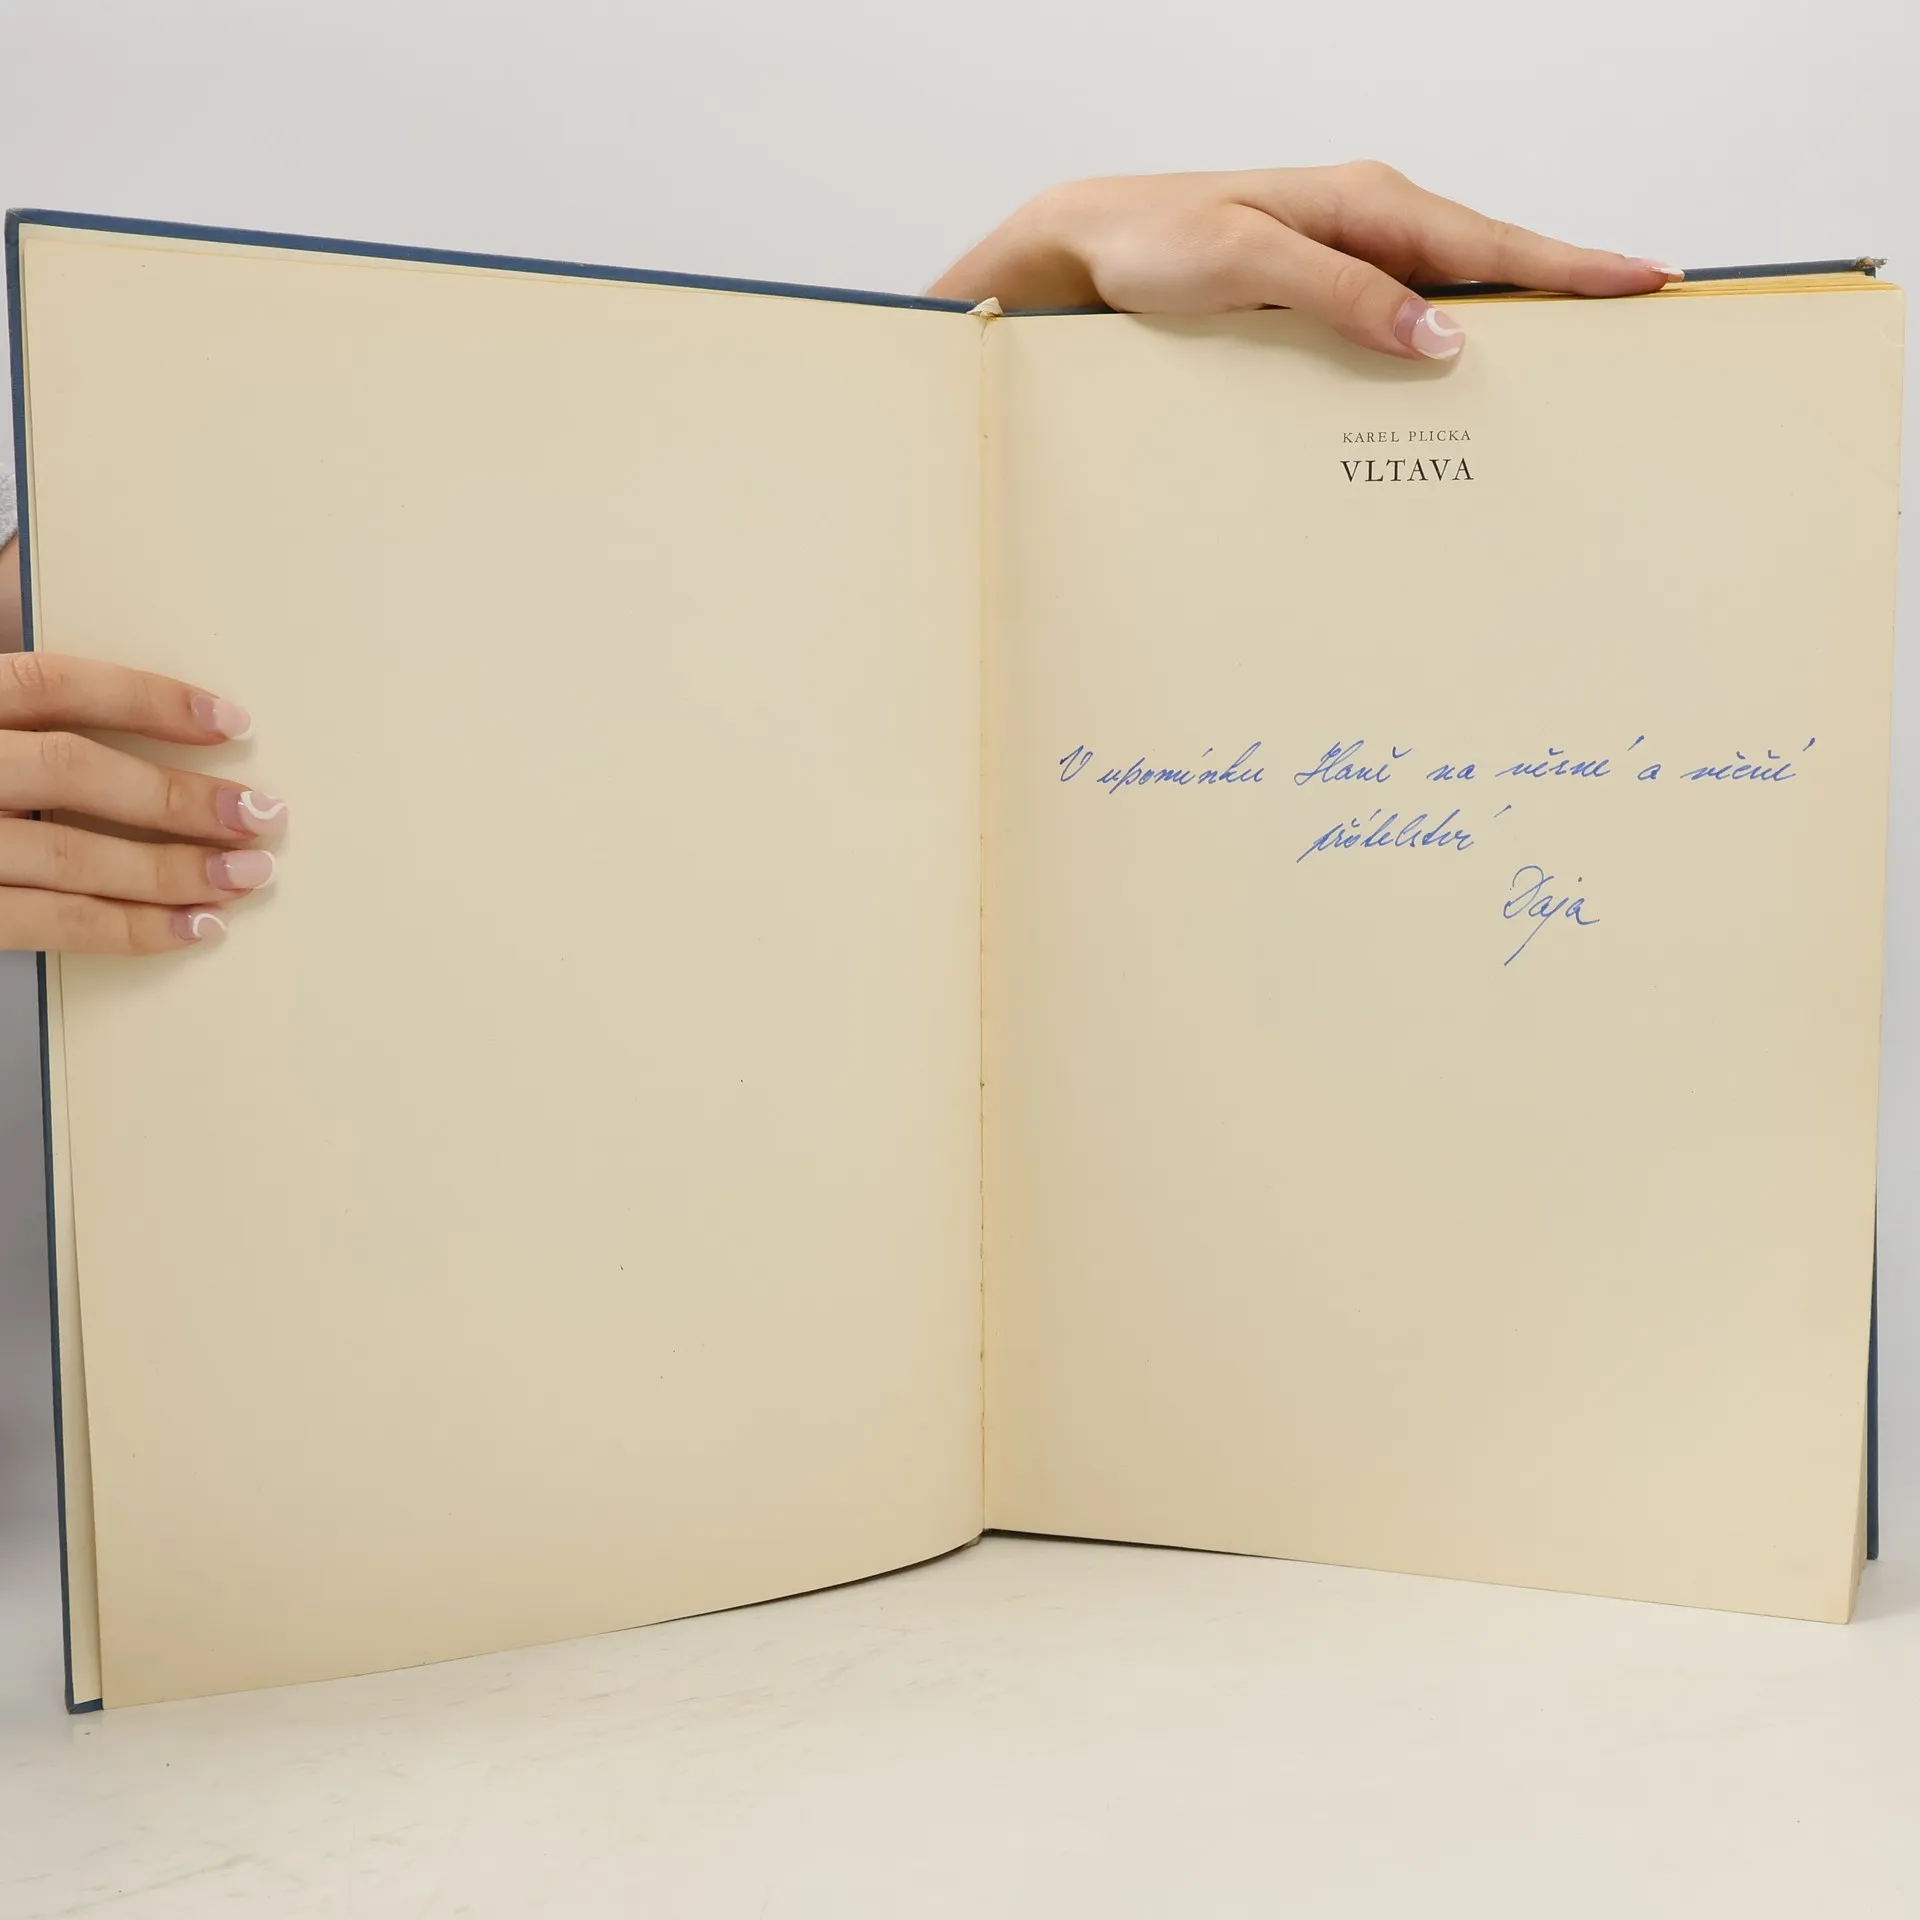 KAREL PLICKA
VLTAVA
V upomínku Haně na věrné a věčné
přátelství
Dája